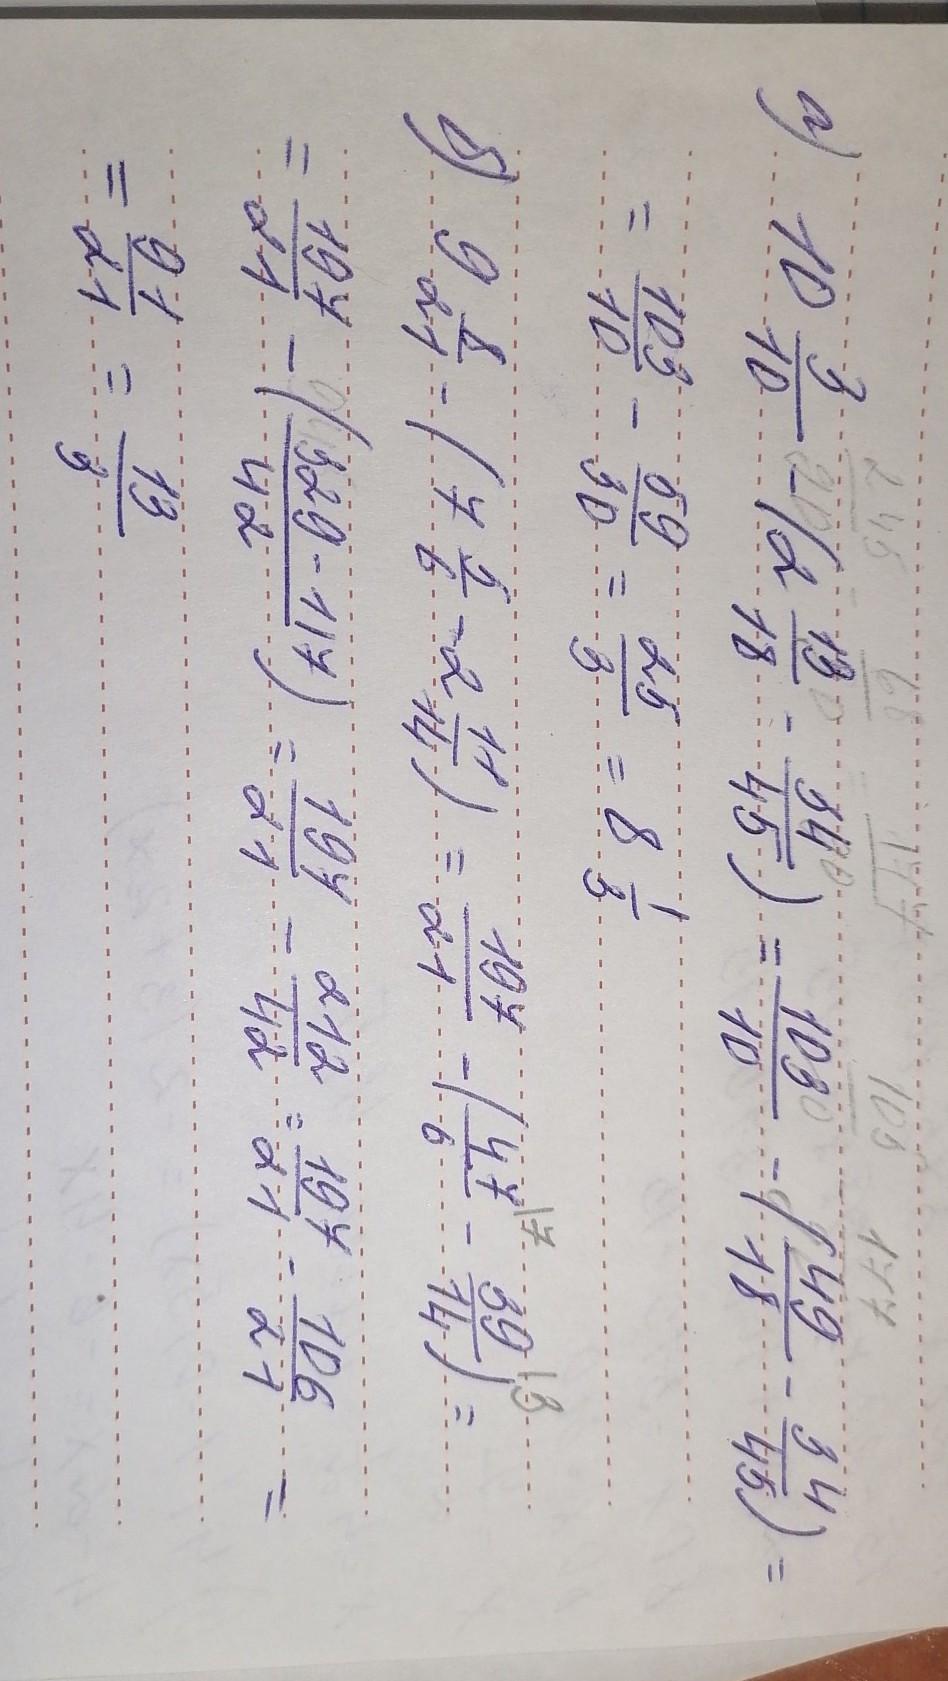 а) 10 3/10 - (2 13/18 - 34/45) = 103/10 - (49/18 - 34/45) =
= 103/10 - 59/30 = 25/3 = 8 1/3
б) 9 8/21 - (7 5/6 - 2 11/14) = 197/21 - (47/6 \7 - 39/14 \3) =
= 197/21 - (329-117/42) = 197/21 - 212/42 = 197/21 - 106/21 =
= 91/21 = 13/3